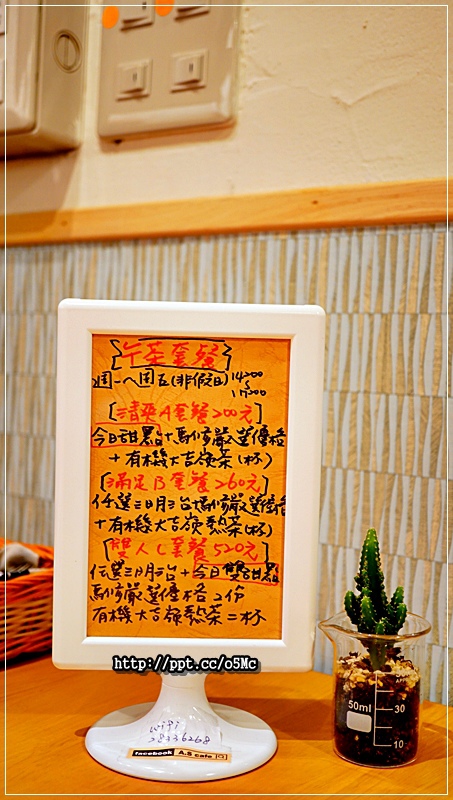 午茶套餐
週一~週五(非假日) 14:00
~
17:00
[清爽A套餐200元]
今日甜點+馬修嚴選優格
+有機大吉嶺茶(杯)
[滿足B套餐260元]
任選三明治+馬修嚴選優格
+有機大吉嶺熱茶(杯)
[雙人C套餐520元]
任選三明治+今日雙甜點
馬修嚴選優格2份
有機大吉嶺熱茶二杯
http://ppt.cc/o5Mc
wifi
28336268
facebook A.S cafe
50ml
30
10